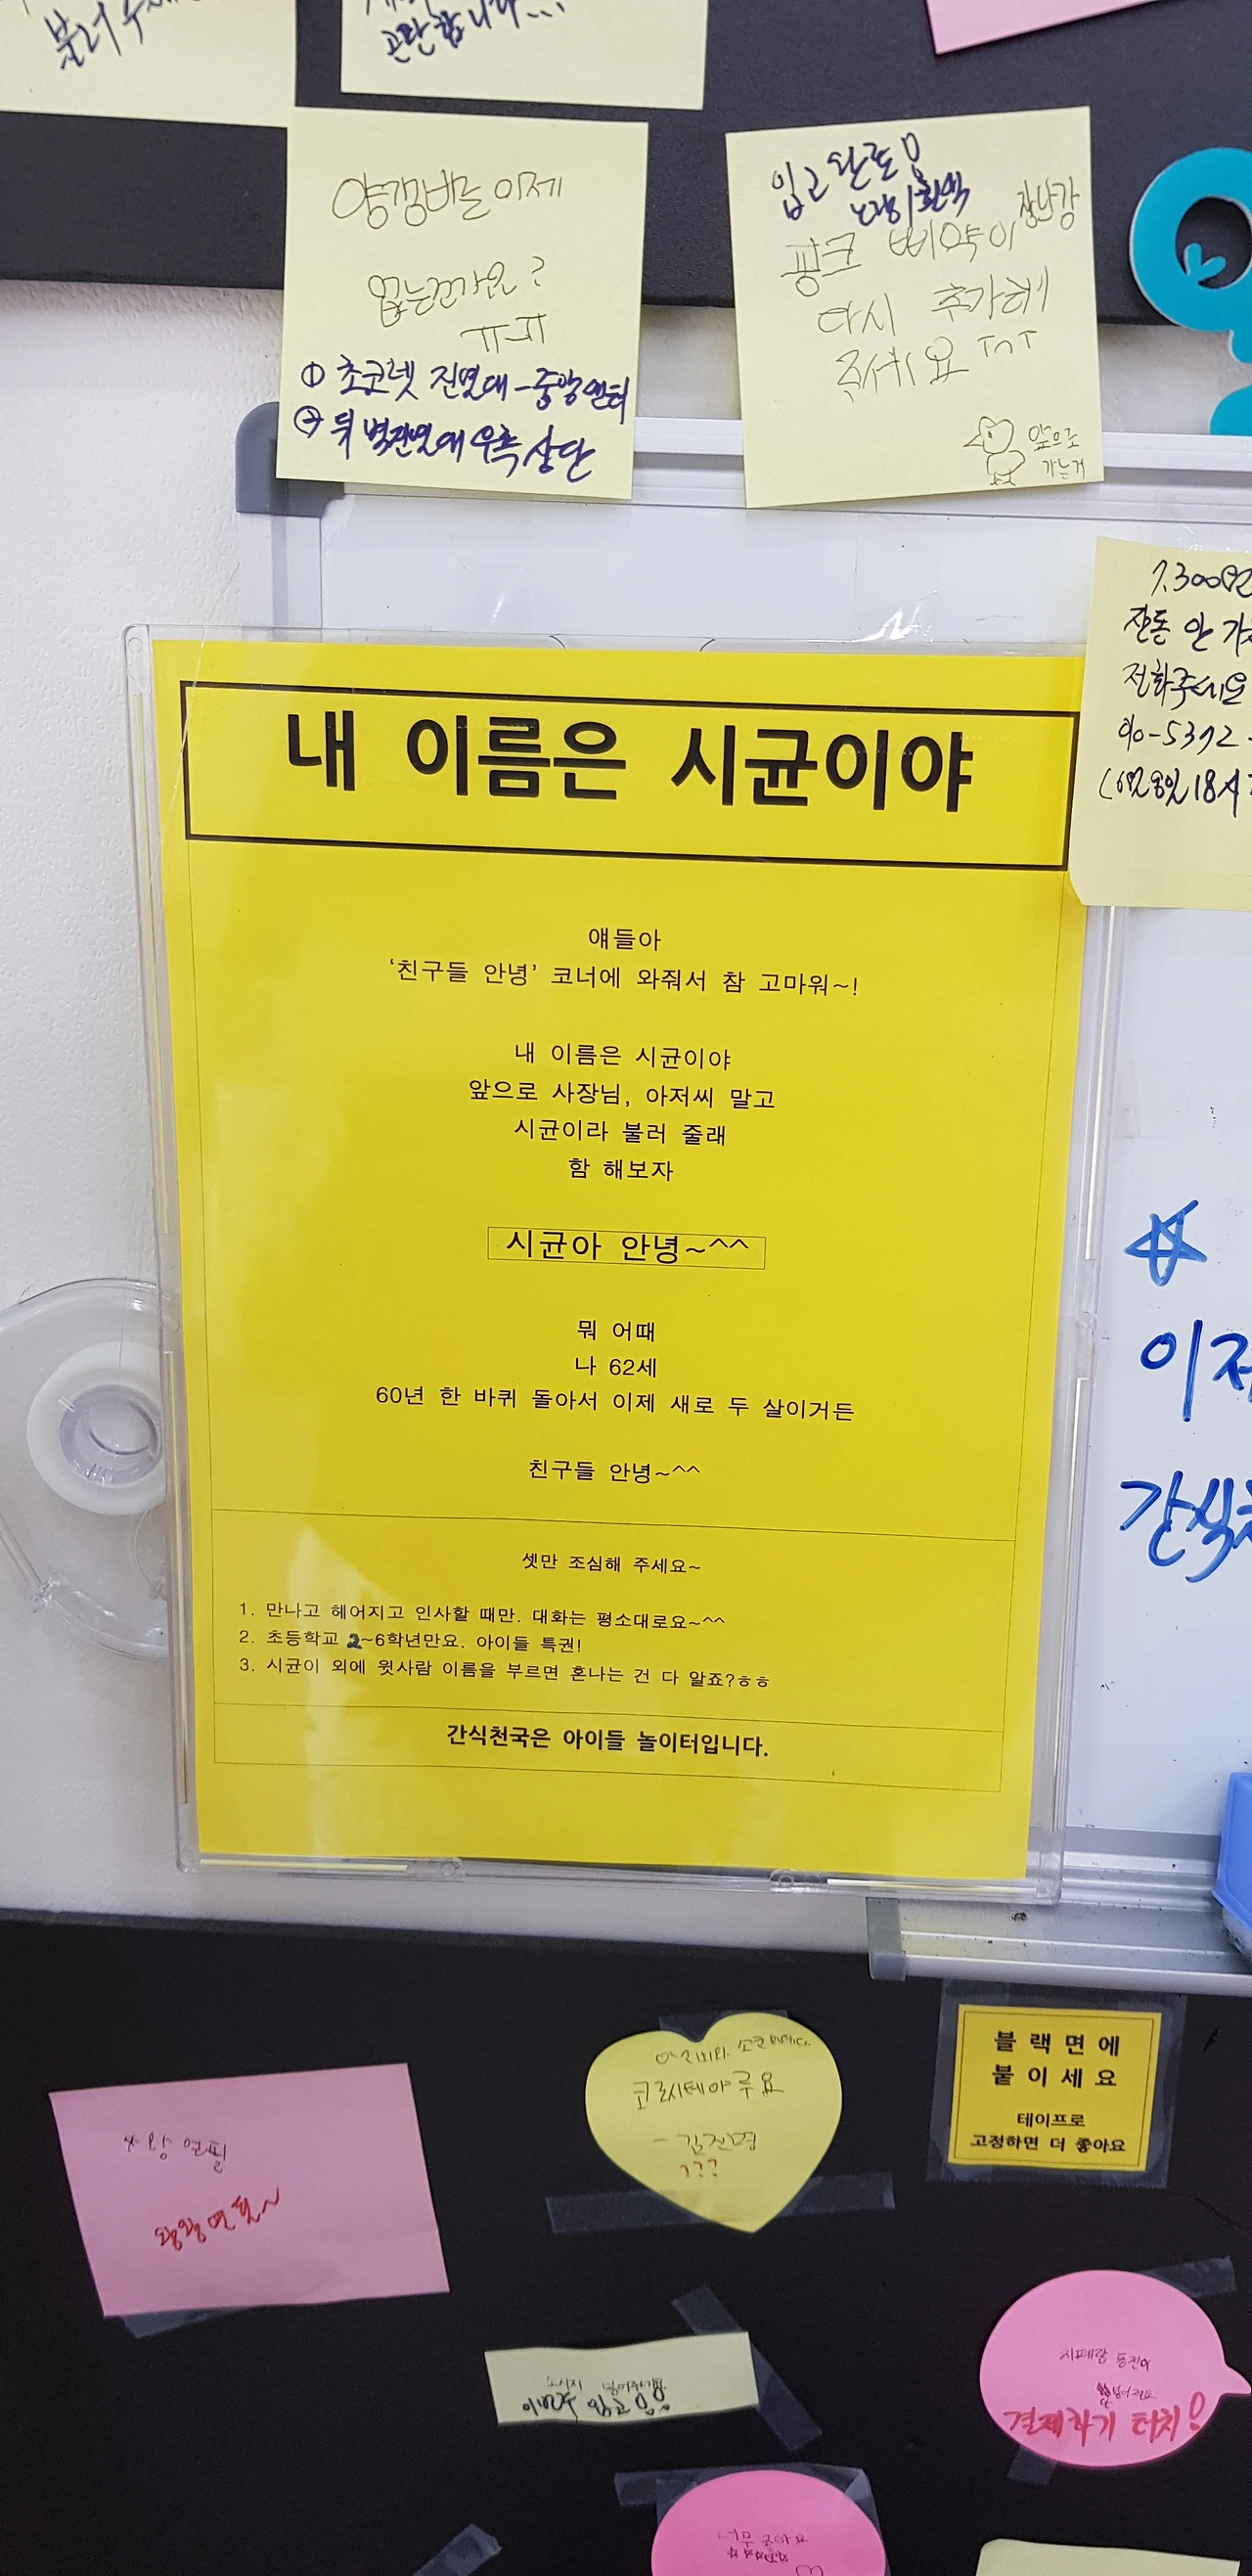 불러주세
곤란합니다...
양갱바는 이제
없는건가요?
ㅠㅠ
① 초코렛 진열대 - 중앙센터
② 뒤 벽진열대 우측 상단
입고 완료!
노랑이 흰색
핑크 삐약이 장난감
다시 추가해
주세요 ㅜㅅㅜ
앞으로
가는거
7.300원
잔돈 안 가
전화주세요
010-5372-
내 이름은 시균이야
얘들아
‘친구들 안녕’ 코너에 와줘서 참 고마워~!
내 이름은 시균이야
앞으로 사장님, 아저씨 말고
시균이라 불러 줄래
함 해보자
시균아 안녕~^^
뭐 어때
나 62세
60년 한 바퀴 돌아서 이제 새로 두 살이거든
친구들 안녕~^^
셋만 조심해 주세요~
1. 만나고 헤어지고 인사할 때만. 대화는 평소대로요~^^
2. 초등학교 2~6학년만요. 아이들 특권!
3. 시균이 외에 윗사람 이름을 부르면 혼나는 건 다 알죠?ㅎㅎ
간식천국은 아이들 놀이터입니다.
☆
이제
간식천
블랙면에
붙이세요
테이프로
고정하면 더 좋아요
왕 연필
왕왕연필~
- 김진명
???
소시지 넣어주세요
이번주 입고!!
결제하기 터치!
너무 좋아요